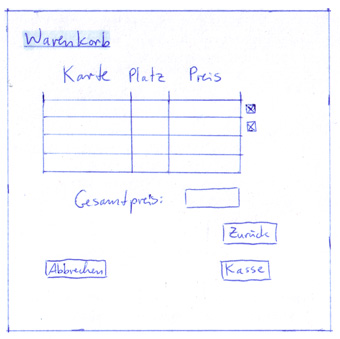 Warenkorb
Karte Platz Preis
Gesamtpreis:
Zurück
Abbrechen Kasse